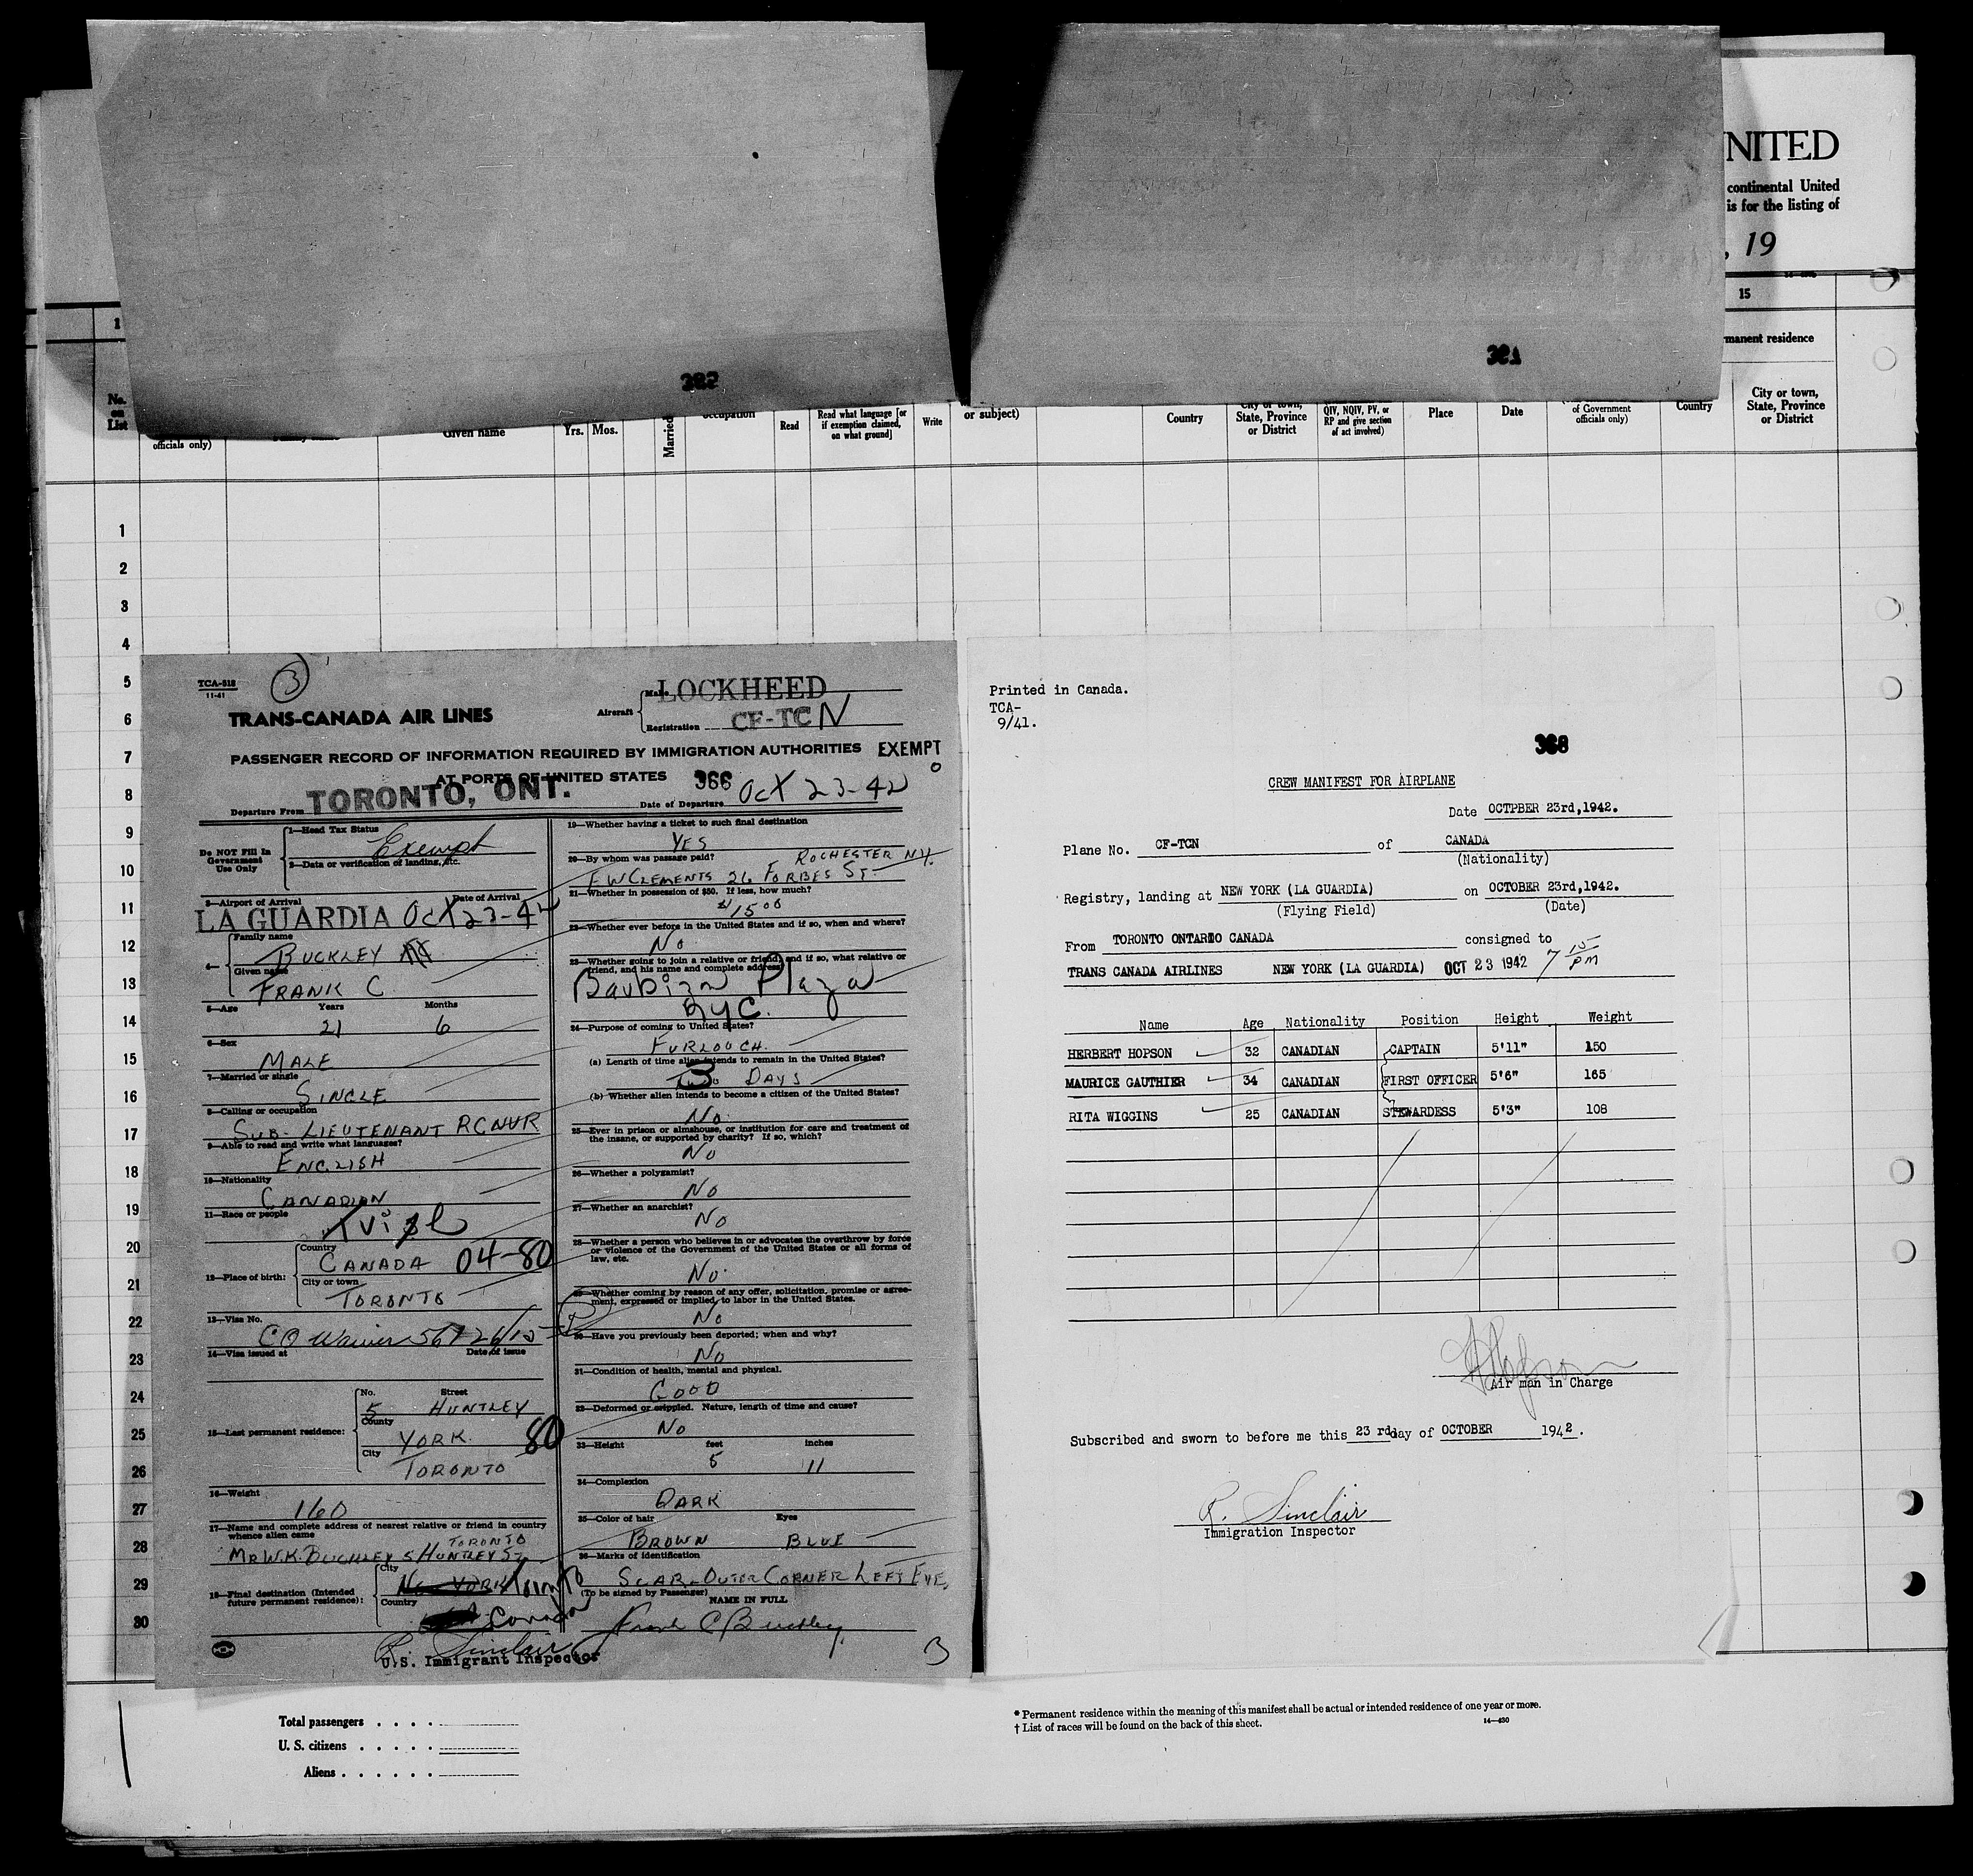 NITED
continental United
is for the listing of
, 19
15
1
manent residence
382
381
No.
on
List
officials only)
Given name
Yrs. Mos.
Married
occupation
Read
Read what language [or
if exemption claimed,
on what ground]
Write
or subject)
Country
City or town,
State, Province
or District
QIV, NQIV, PV, or
RP and give section
of act involved)
Place
Date
of Government
officials only)
Country
City or town,
State, Province
or District
1
2
3
4
5
6
7
8
9
10
11
12
13
14
15
16
17
18
19
20
21
22
23
24
25
26
27
28
29
30
TCA-518
11-41
3
TRANS-CANADA AIR LINES
Aircraft
Make LOCKHEED
Registration CF-TCN
PASSENGER RECORD OF INFORMATION REQUIRED BY IMMIGRATION AUTHORITIES EXEMPT
AT PORTS OF UNITED STATES 366
Departure From TORONTO, ONT. Date of Departure Oct 23-42
Do NOT Fill In
Government
Use Only
1—Head Tax Status
Exempt
2—Data or verification of landing, etc.
3—Airport of Arrival Date of Arrival
LA GUARDIA Oct 23-42
4—
Family name
BUCKLEY
Given name
FRANK C
5—Age Years Months
21 6
6—Sex
MALE
7—Married or single
SINGLE
8—Calling or occupation
SUB-LIEUTENANT RCNVR
9—Able to read and write what languages?
ENGLISH
10—Nationality
CANADIAN
11—Race or people
Irish
12—Place of birth:
Country
CANADA 04-80
City or town
TORONTO
13—Visa No.
CO Waiver 561 26/15
14—Visa issued at Date of issue
15—Last permanent residence:
No. Street
5 HUNTLEY
County
YORK 80
City
TORONTO
16—Weight
160
17—Name and complete address of nearest relative or friend in country
whence alien came
TORONTO
MR W.K. BUCKLEY 5 HUNTLEY ST.
18—Final destination (Intended
future permanent residence):
City
N. YORK Toronto
Country
Canada
R. Sinclair
U.S. Immigrant Inspector
19—Whether having a ticket to such final destination
YES
20—By whom was passage paid? ROCHESTER N.Y.
F W CLEMENTS 26 FORBES ST.
21—Whether in possession of $50. If less, how much?
$15 00
22—Whether ever before in the United States and if so, when and where?
NO
23—Whether going to join a relative or friend, and if so, what relative or
friend, and his name and complete address
Barbizon Plaza
NYC.
24—Purpose of coming to United States?
FURLOUGH.
(a) Length of time alien intends to remain in the United States?
3 DAYS
(b) Whether alien intends to become a citizen of the United States?
NO.
25—Ever in prison or almshouse, or institution for care and treatment of
the insane, or supported by charity? If so, which?
NO
26—Whether a polygamist?
NO
27—Whether an anarchist?
NO
28—Whether a person who believes in or advocates the overthrow by force
or violence of the Government of the United States or all forms of
law, etc.
NO.
29—Whether coming by reason of any offer, solicitation, promise or agree-
ment, expressed or implied, to labor in the United States.
NO
30—Have you previously been deported; when and why?
NO
31—Condition of health, mental and physical.
GOOD
32—Deformed or crippled. Nature, length of time and cause?
NO
33—Height feet inches
5 11
34—Complexion
DARK
35—Color of hair Eyes
BROWN BLUE
36—Marks of identification
SCAR-OUTER CORNER LEFT EYE.
(To be signed by Passenger)
NAME IN FULL
Frank C Buckley.
3
Printed in Canada.
TCA-
9/41.
368
CREW MANIFEST FOR AIRPLANE
Date OCTPBER 23rd,1942.
Plane No. CF-TCN of CANADA
(Nationality)
Registry, landing at NEW YORK (LA GUARDIA) on OCTOBER 23rd,1942.
(Flying Field) (Date)
From TORONTO ONTARIO CANADA consigned to
TRANS CANADA AIRLINES NEW YORK (LA GUARDIA) OCT 23 1942 7 15 PM
Name Age Nationality Position Height Weight
HERBERT HOPSON 32 CANADIAN CAPTAIN 5'11" 150
MAURICE GAUTHIER 34 CANADIAN FIRST OFFICER 5'6" 165
RITA WIGGINS 25 CANADIAN STEWARDESS 5'3" 108
H Hopson
Air man in Charge
Subscribed and sworn to before me this 23 rd day of OCTOBER 1942.
R. Sinclair
Immigration Inspector
Total passengers . . . .
U. S. citizens . . . . .
Aliens . . . . . .
* Permanent residence within the meaning of this manifest shall be actual or intended residence of one year or more.
† List of races will be found on the back of this sheet.
14—430